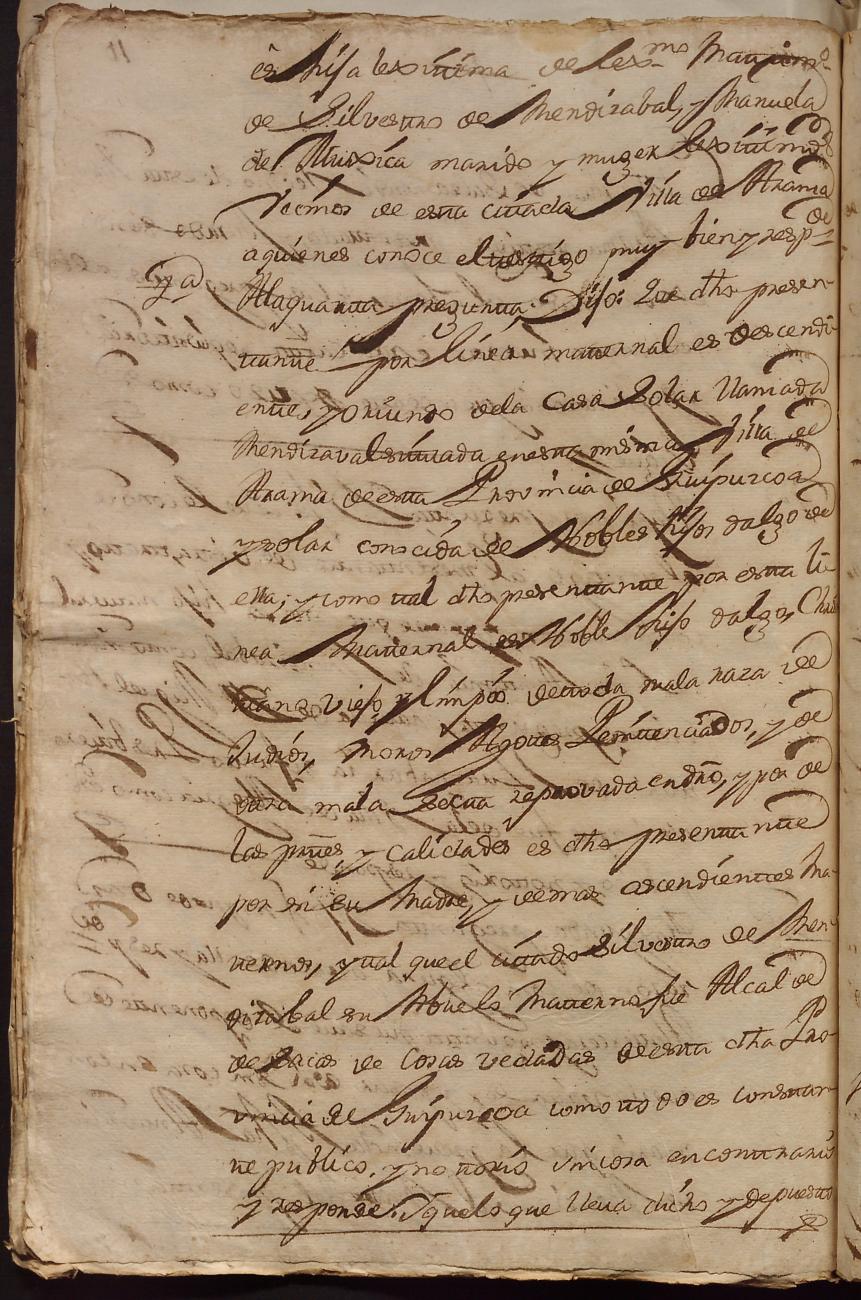 es hija lexitima de lexmo Matrimo
de Silvestro de Mendizabal, y Manuela
de Muxica marido y muger lexitimos
Vecinos de esta citada Villa de Arama
a quienes conoce el testigo muy bien y respde
4a
A la quarta pregunta: Dijo: Que dho presen-
tante por linea maternal es descendi-
ente, y oriundo dela Casa Solar llamada
Mendizaval situada en esta misma Villa de
Arama de esta Provincia de Guipurcoa
y solar conocida de Nobles hijos dalgo de
ella; y como tal dho presentante por esta li-
nea Maternal es Noble hijo dalgo, Chris
tiano viejo y limpio de toda mala raza de
Judios, Moros Agotes Penitenciados, y de
otra mala Secta reprovada en dro, y por de
tas prtes y calidades es dho presentante
por si su Madre, y demas ascendientes Ma-
ternos, y tal que el citado Silvestro de Men-
dizabal su Abuelo Materno fue Alcalde
de sacas de cosas vedadas de esta dha Pro-
vincia de Guipurcoa como todo es constan-
te publico, y notorio sin cosa en contrario
y responde. Y que lo que lleva dicho y depuesto